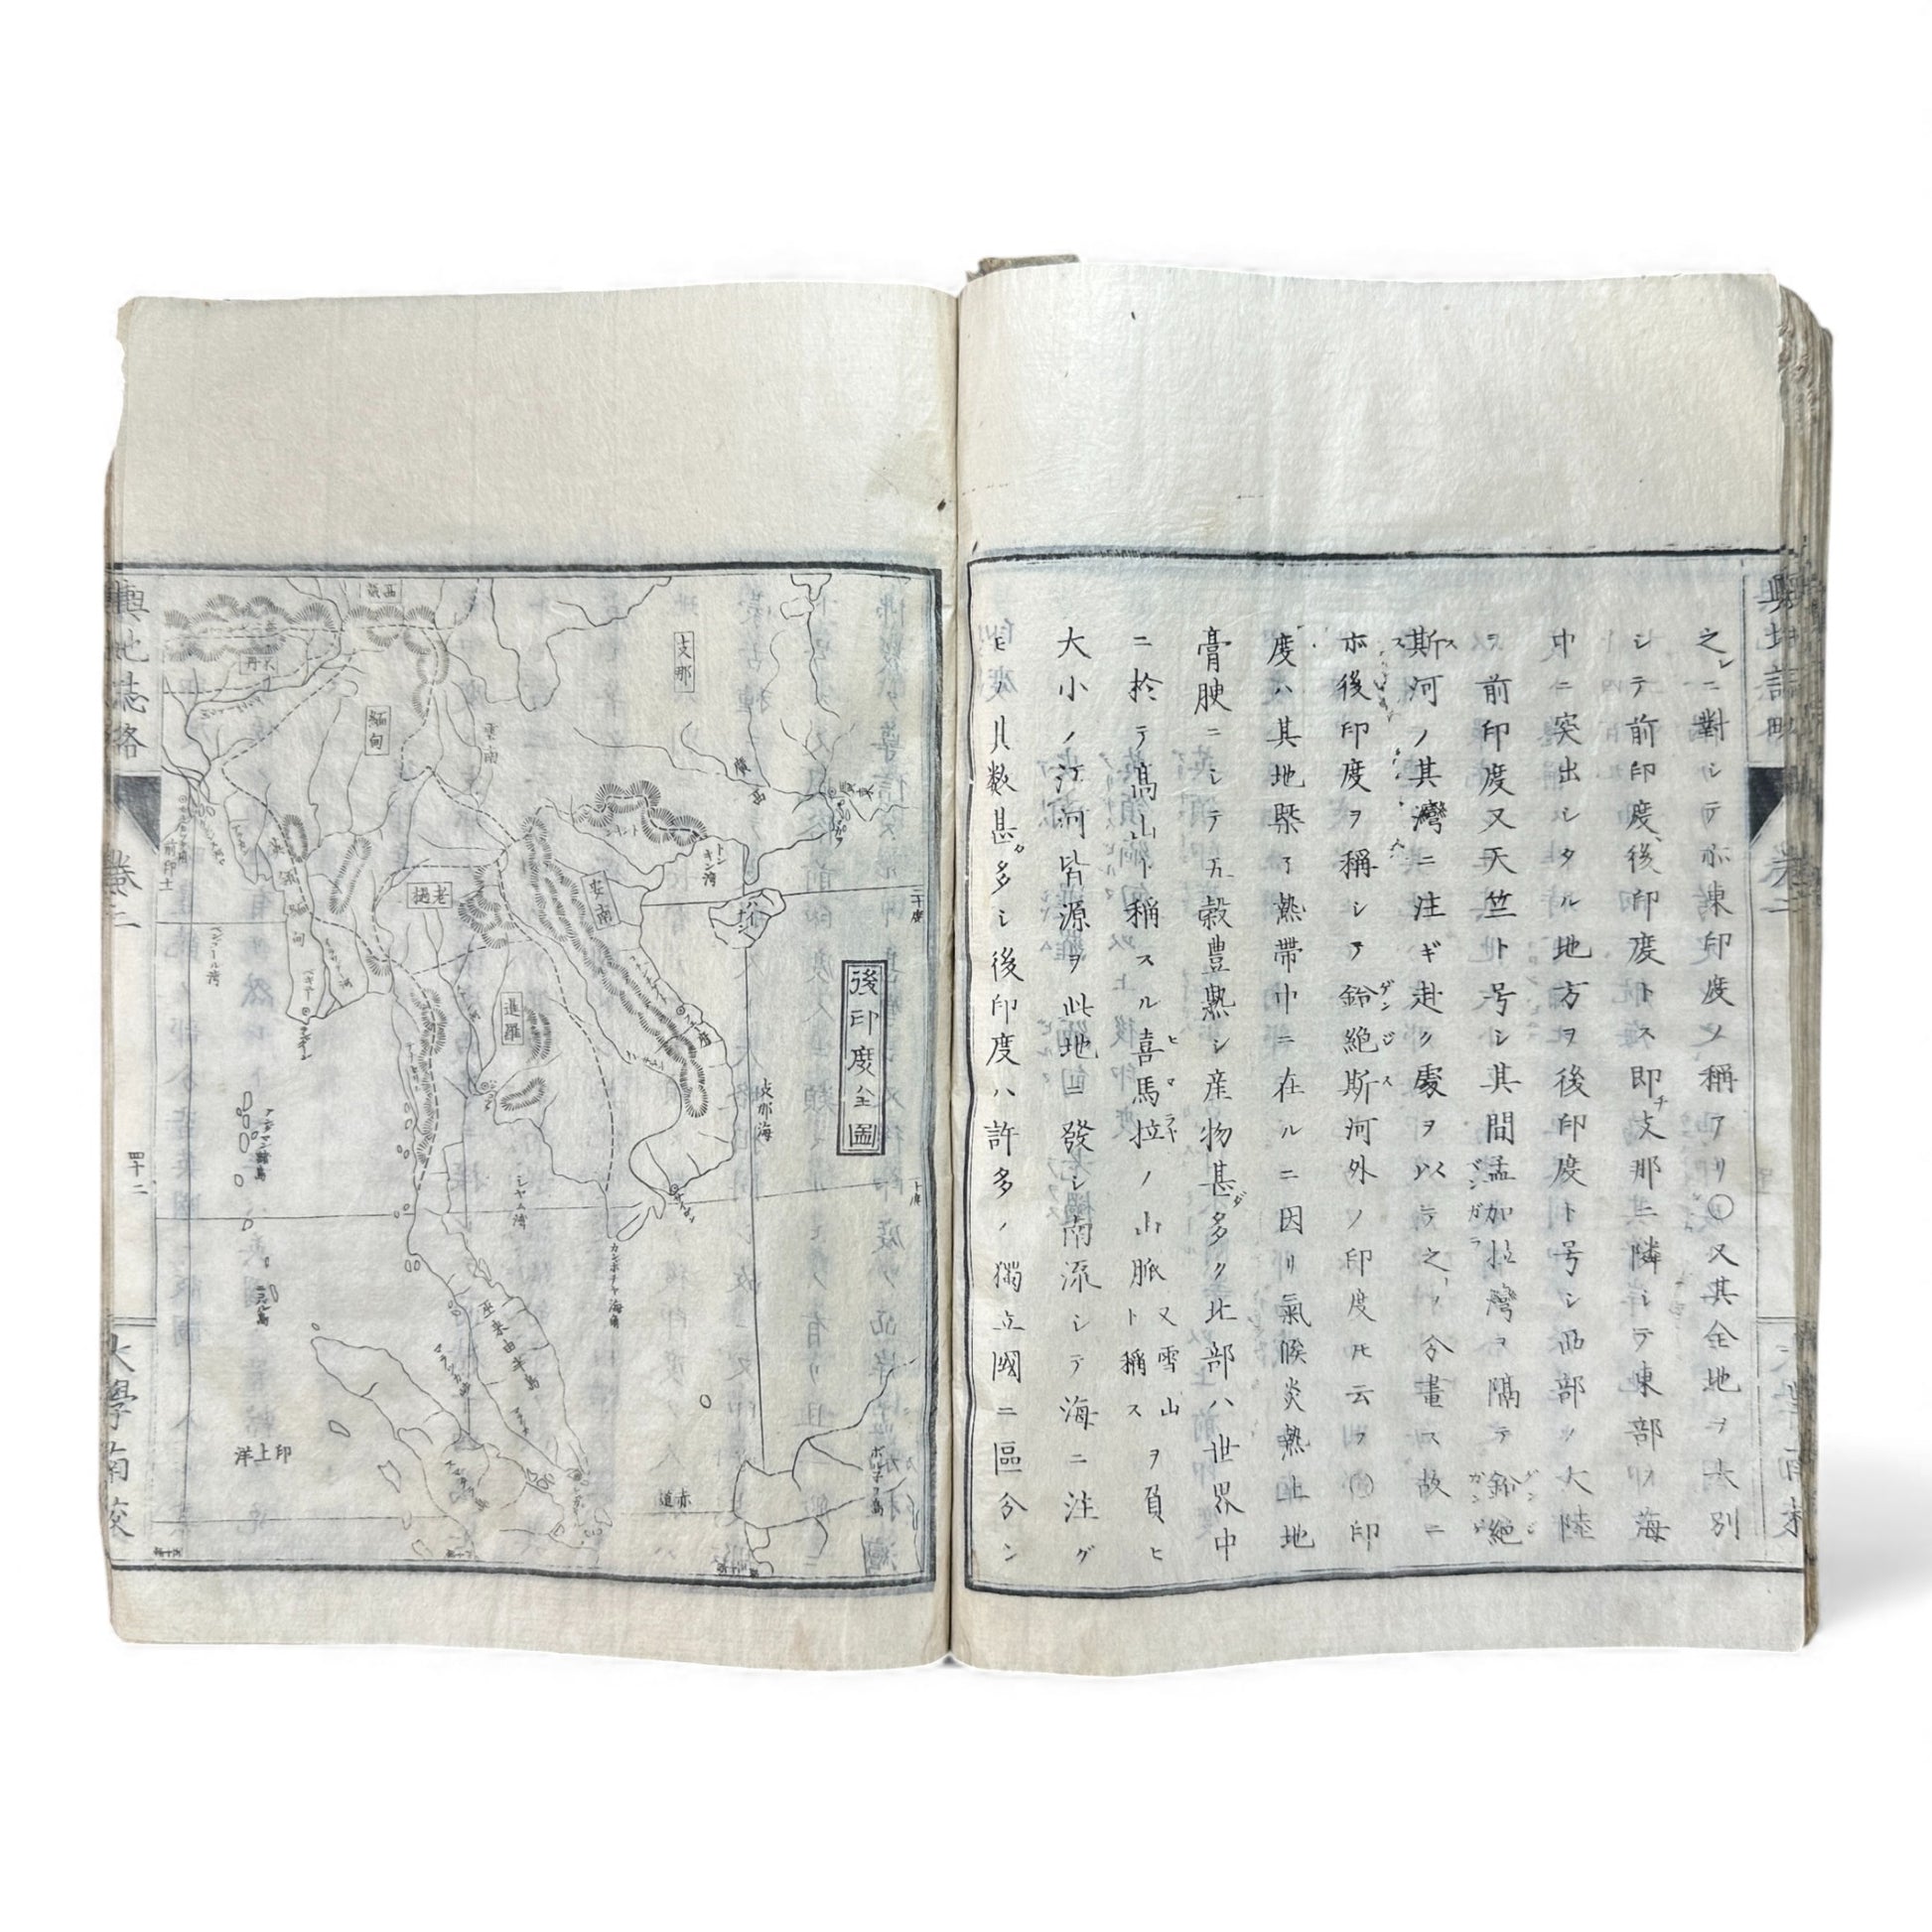 之ニ對シテ亦東印度ノ稱アリ〇又其全地ヲ大別
シテ前印度後印度トス即チ支那ニ隣シテ東部ノ海
中ニ突出シタル地方ヲ後印度ト号シ西部ノ大陸
ヲ前印度又天竺ト号シ其間孟加拉灣ヲ隔テ鈴絶
斯河ノ其灣ニ注ギ赴ク處ヲ以テ之ノ分畫ス故ニ
亦後印度ヲ稱シテ鈴絶斯河外ノ印度トモ云フ〇印
度ハ其地槩子熱帶中ニ在ルニ因リ氣候炎熱土地
膏腴ニシテ五穀豊熟シ産物甚ダ多ク北部ハ世界中
ニ於テ高山ト稱スル喜馬拉ノ山脈又雪山ト稱スヲ負ヒ
大小ノ江河皆源ヲ此地ニ發シ南流シテ海ニ注グ
モ其数甚ダ多シ後印度ハ許多ノ獨立國ニ區分シ
輿地誌略
卷二
四十二
大學南校
後印度全圖
支那
緬甸
雲南
老撾
安南
暹羅
トンキン湾
ハイナン
二十度
十度
支那海
シヤム湾
ベンゴール湾
カンボチヤ海
ニコバル島
巫来由半島
マラッカ
印土洋
赤道
ボルネヲ島